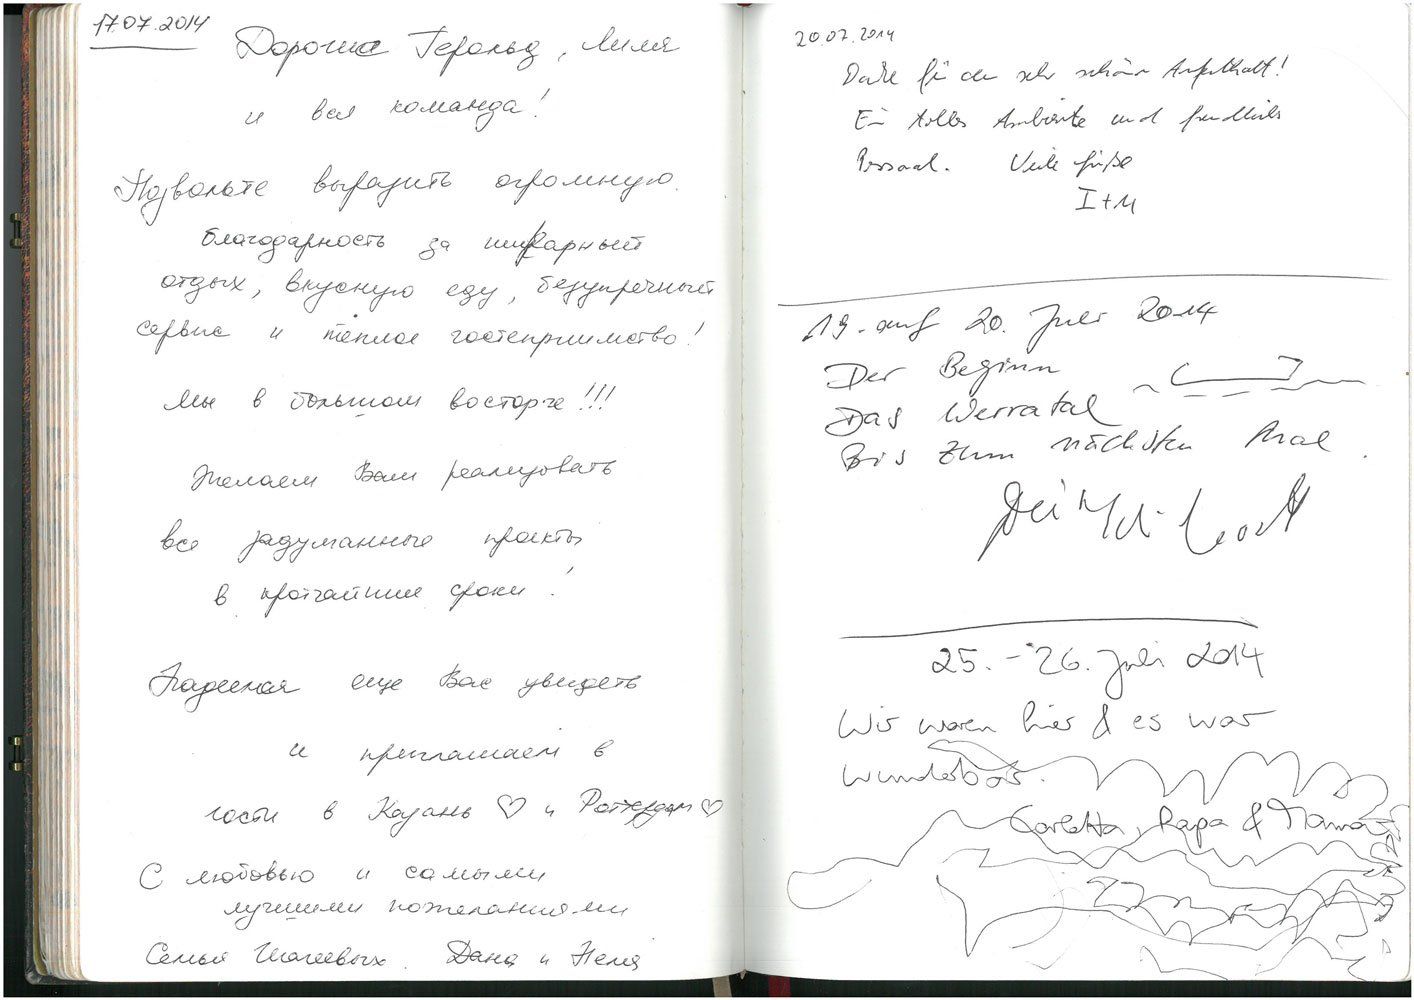 17.07.2014
Дорогие Герольд, Лиля
и вся команда!
Позвольте выразить огромную
благодарность за шикарный
отдых, вкусную еду, безупречный
сервис и тёплое гостеприимство!
Мы в большом восторге!!!
Желаем Вам реализовать
все задуманные проекты
в кротчайшие сроки!
Надеемся еще Вас увидеть
и приглашаем в
гости в Казань ♡ и Роттердам ♡
С любовью и самыми
лучшими пожеланиями
Семья Дана и Неля
20.07.2014
Danke für den sehr schönen Aufenthalt!
Ein tolles Ambiente und freundliches
Personal. Viele Grüße
I+M
19. auf 20. Juli 2014
Der Beginn
Das Werratal
Bis zum nächsten Mal.
25. - 26. Juli 2014
Wir waren hier & es war
wunderbar.
Carlotta, Papa & Mama